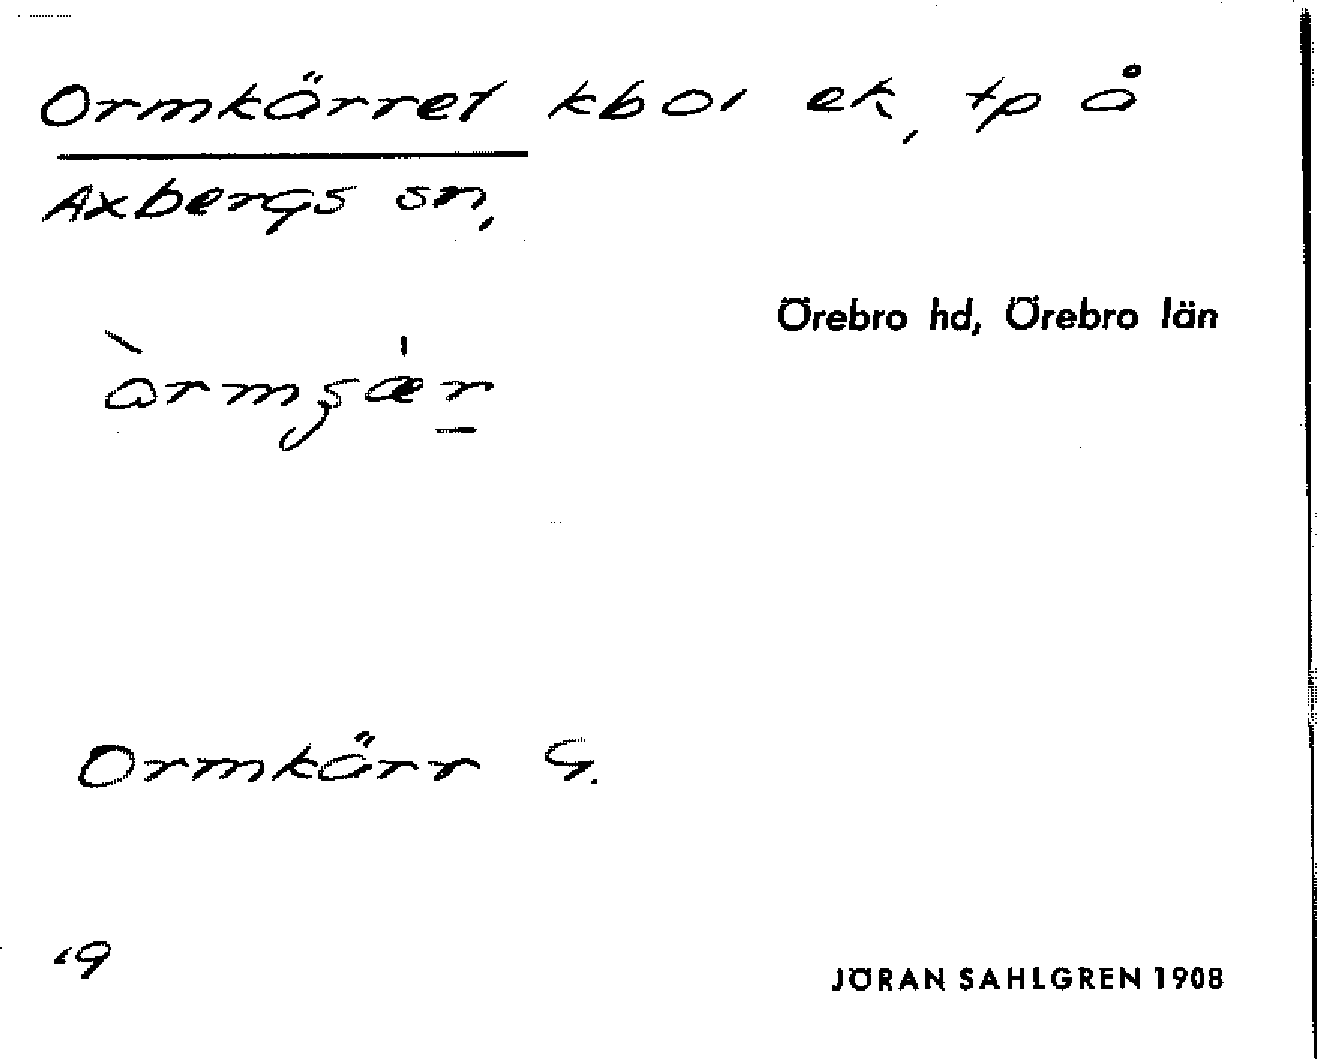 Ormkärret kbol ek, tp å
Axbergs sn,
Örebro hd, Örebro län
Ormkärr G.
19
JÖRAN SAHLGREN 1908